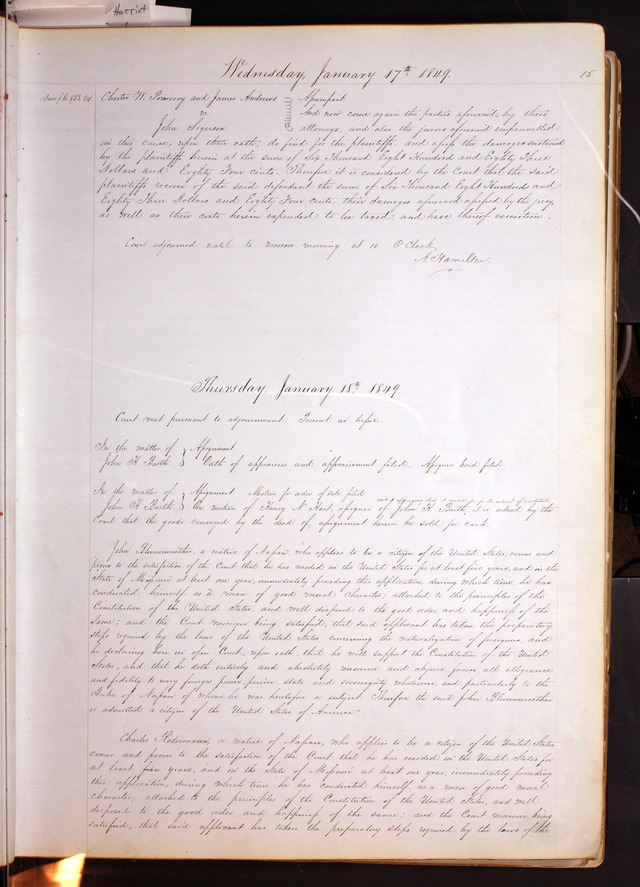 Harriet
Wednesday, January 17th 1849.
15
Chester W. Pomeroy and James Andrews } Assumpsit
vs.
John Sigerson
And now come again the parties aforesaid by their
attorneys, and also the jurors aforesaid empannelled
in this cause, upon their oath, do find for the plaintiffs, and assess the damages sustained
by the plaintiffs herein at the sum of Six Thousand Eight Hundred and Eighty Three
Dollars and Eighty Four cents. Therefore it is considered by the Court that the said
plaintiffs recover of the said defendant the sum of Six Thousand Eight Hundred and
Eighty Three Dollars and Eighty Four cents, their damages aforesaid assessed by the jury
as well as their costs herein expended to be taxed, and have thereof execution.
Court adjourned until to morrow morning at 10 O'Clock
A. Hamilton.
Thursday January 18th 1849
Court met pursuant to adjournment Present as before.
In the matter of } Assignment
John H Barth. } Oath of appraisers and appraisement filed. Assignees bond filed.
In the matter of } Assignment Motion for order of sale filed
John H Barth. } On motion of Henry N. Hart, assignee of John H Barth, it is ordered by the
Court that the goods conveyed by the deed of assignment herein be sold for cash.
John Blumenrother, a native of Nassau who applies to be a citizen of the United States, comes and
proves to the satisfaction of the Court that he has resided in the United States for at least five years, and in the
State of Missouri at least one year, immediately preceding this application, during which time he has
conducted himself as a man of good moral character; attached to the principles of the
Constitution of the United States, and well disposed to the good order and happiness of the
same; and the Court moreover being satisfied, that said applicant has taken the preparatory
steps required by the laws of the United States concerning the naturalization of foreigners, and
he declaring here in open Court, upon oath, that he will support the Constitution of the United
States, and that he doth entirely and absolutely renounce and abjure forever, all allegiance
and fidelity to every foreign power, prince state and sovereignty whatsoever, and particularly to the
Duke of Nassau of whom he was heretofore a subject Therefore the said John Blumenrother
is admitted a citizen of the United States of America.
Charles Rodemann, a native of Nassau, who applies to be a citizen of the United States
comes and proves to the satisfaction of the Court that he has resided in the United States for
at least five years, and in the State of Missouri at least one year, immediately preceding
this application, during which time he has conducted himself as a man of good moral
character; attached to the principles of the Constitution of the United States, and well
disposed to the good order and happiness of the same; and the Court moreover being
satisfied, that said applicant has taken the preparatory steps required by the laws of the